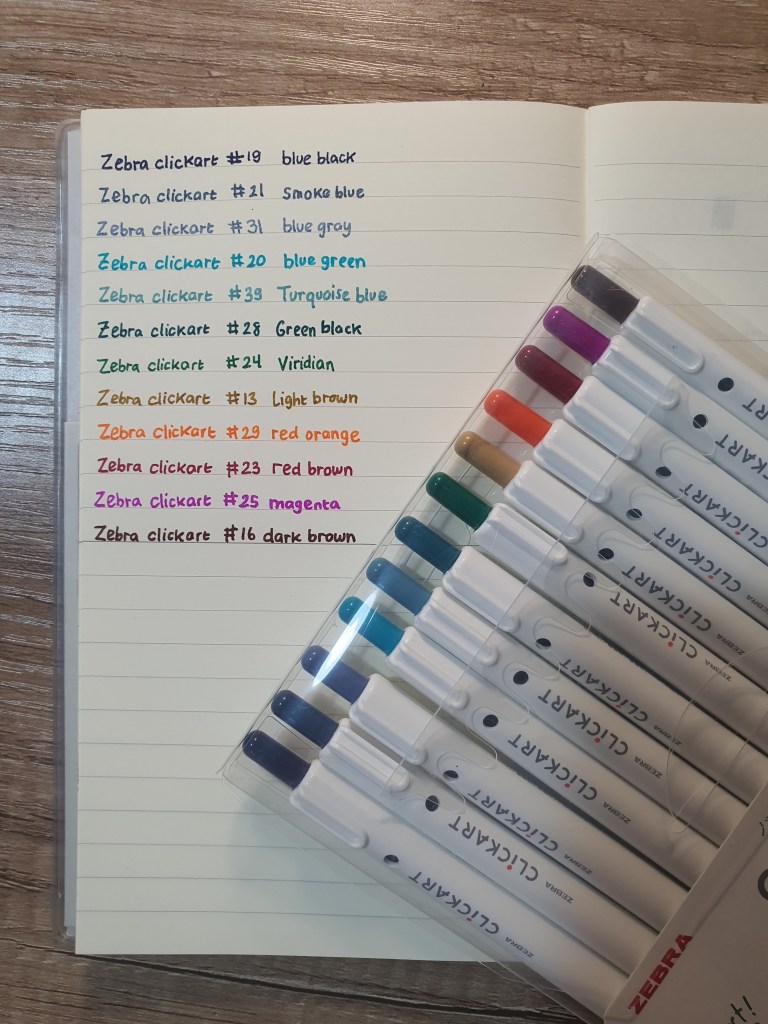 Zebra clickart #19 blue black
Zebra clickart #21 Smoke blue
Zebra clickart #31 blue gray
Zebra clickart #20 blue green
Zebra clickart #39 Turquoise blue
Zebra clickart #28 Green black
Zebra clickart #24 Viridian
Zebra clickart #13 Light brown
Zebra clickart #29 red orange
Zebra clickart #23 red brown
Zebra clickart #25 magenta
Zebra clickart #16 dark brown
ART
CLiCKART
CLiCKART
CLiCKART
CLiCKART ZEBRA
CLiCKART ZEBRA
CLiCKART ZEBRA
CLiCKART ZEBRA
CLiCKART ZEBRA
CLiCKART ZEBRA
CLiCKART ZEBRA
CLiCKART ZEBRA
ZEBRA